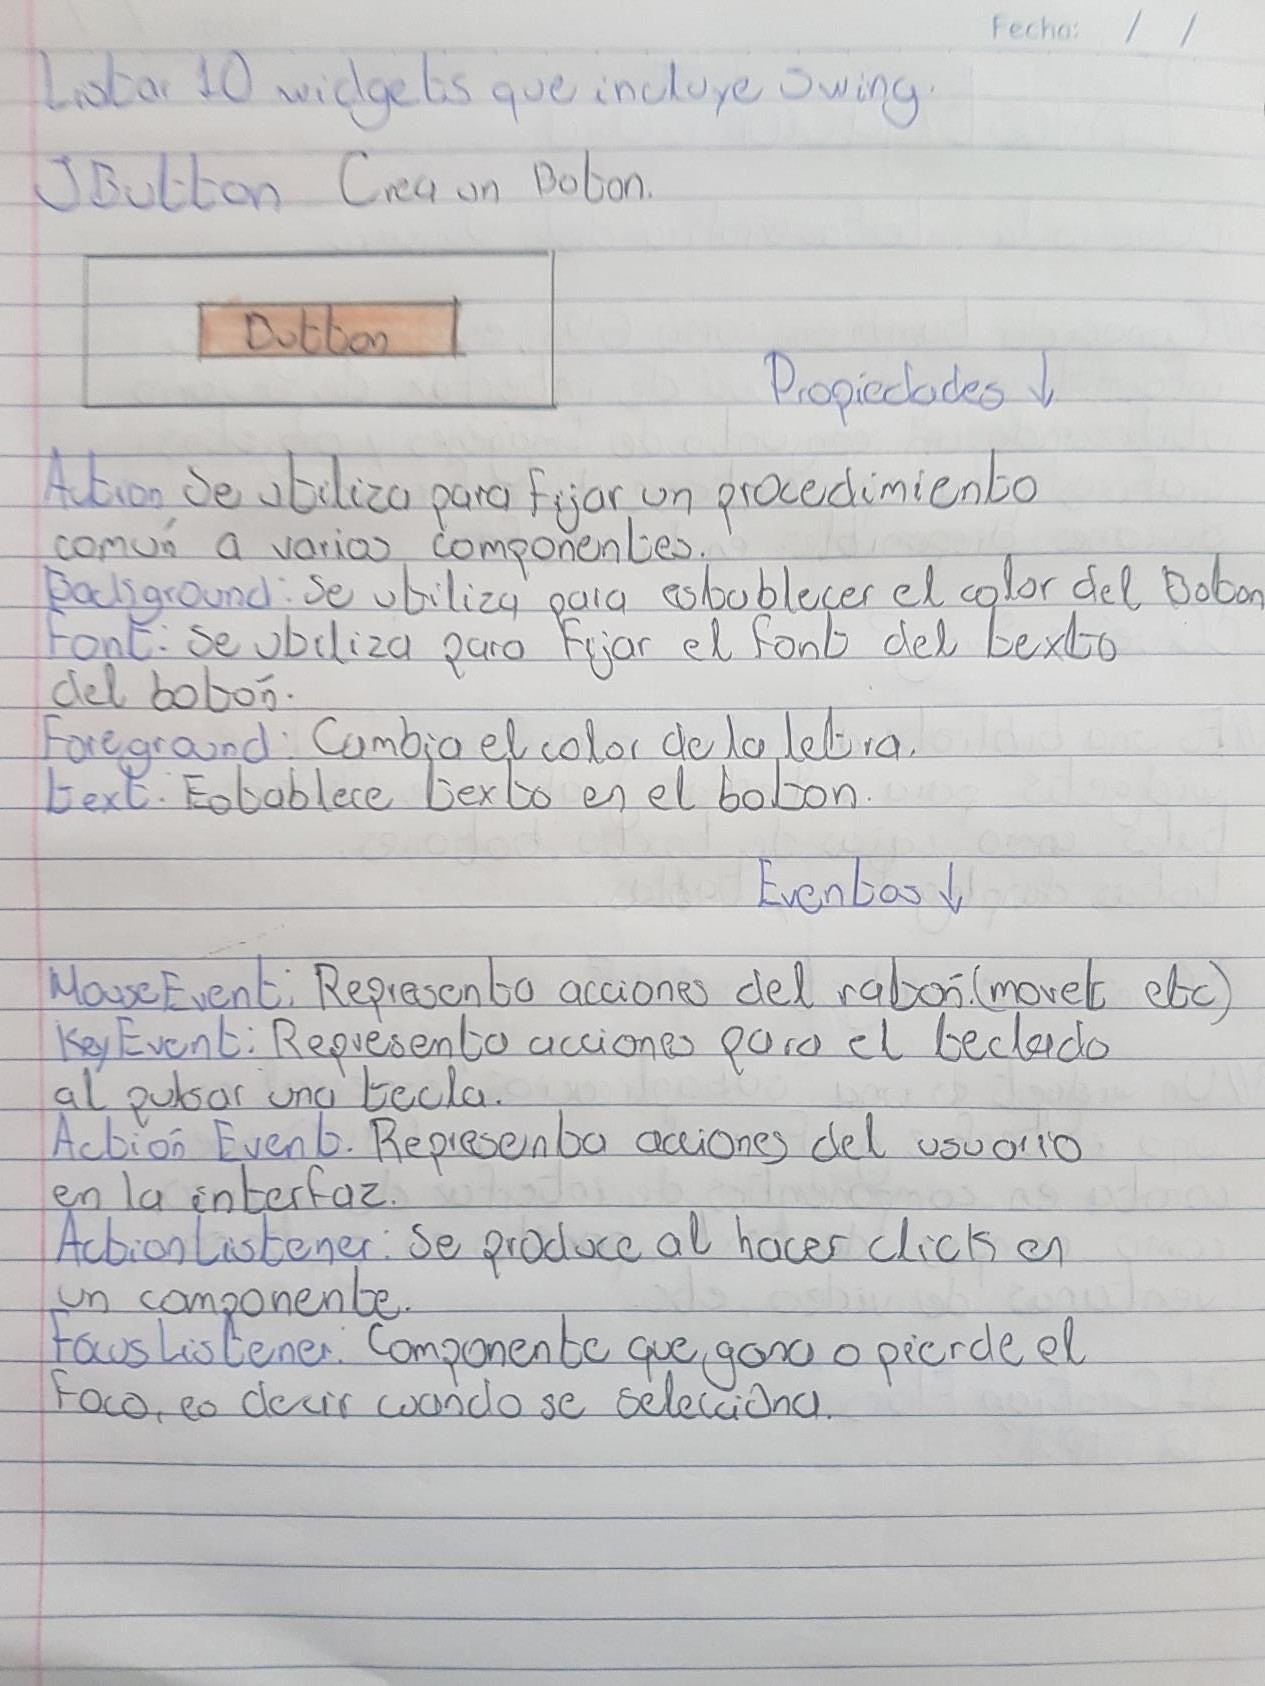 Fecha: / /
Listar 10 widgets que incluye Swing.
JButton Crea un Boton.
Button
Propiedades ↓
Action Se utiliza para fijar un procedimiento
común a varios componentes.
Background: Se utiliza para establecer el color del Boton
Font: Se utiliza para Fijar el font del texto
del botoń.
Foreground: Cambia el color de la letra.
text. Establece texto en el boton.
Eventos ↓
MouseEvent: Representa acciones del ratoń.(mover etc)
KeyEvent: Representa acciones para el teclado
al pulsar una tecla.
Actioń Event. Representa acciones del usuario
en la interfaz.
ActionListener: Se produce al hacer click en
un componente.
FocusListener: Componente que, gana o pierde el
Foco, es decir cuando se selecciona.